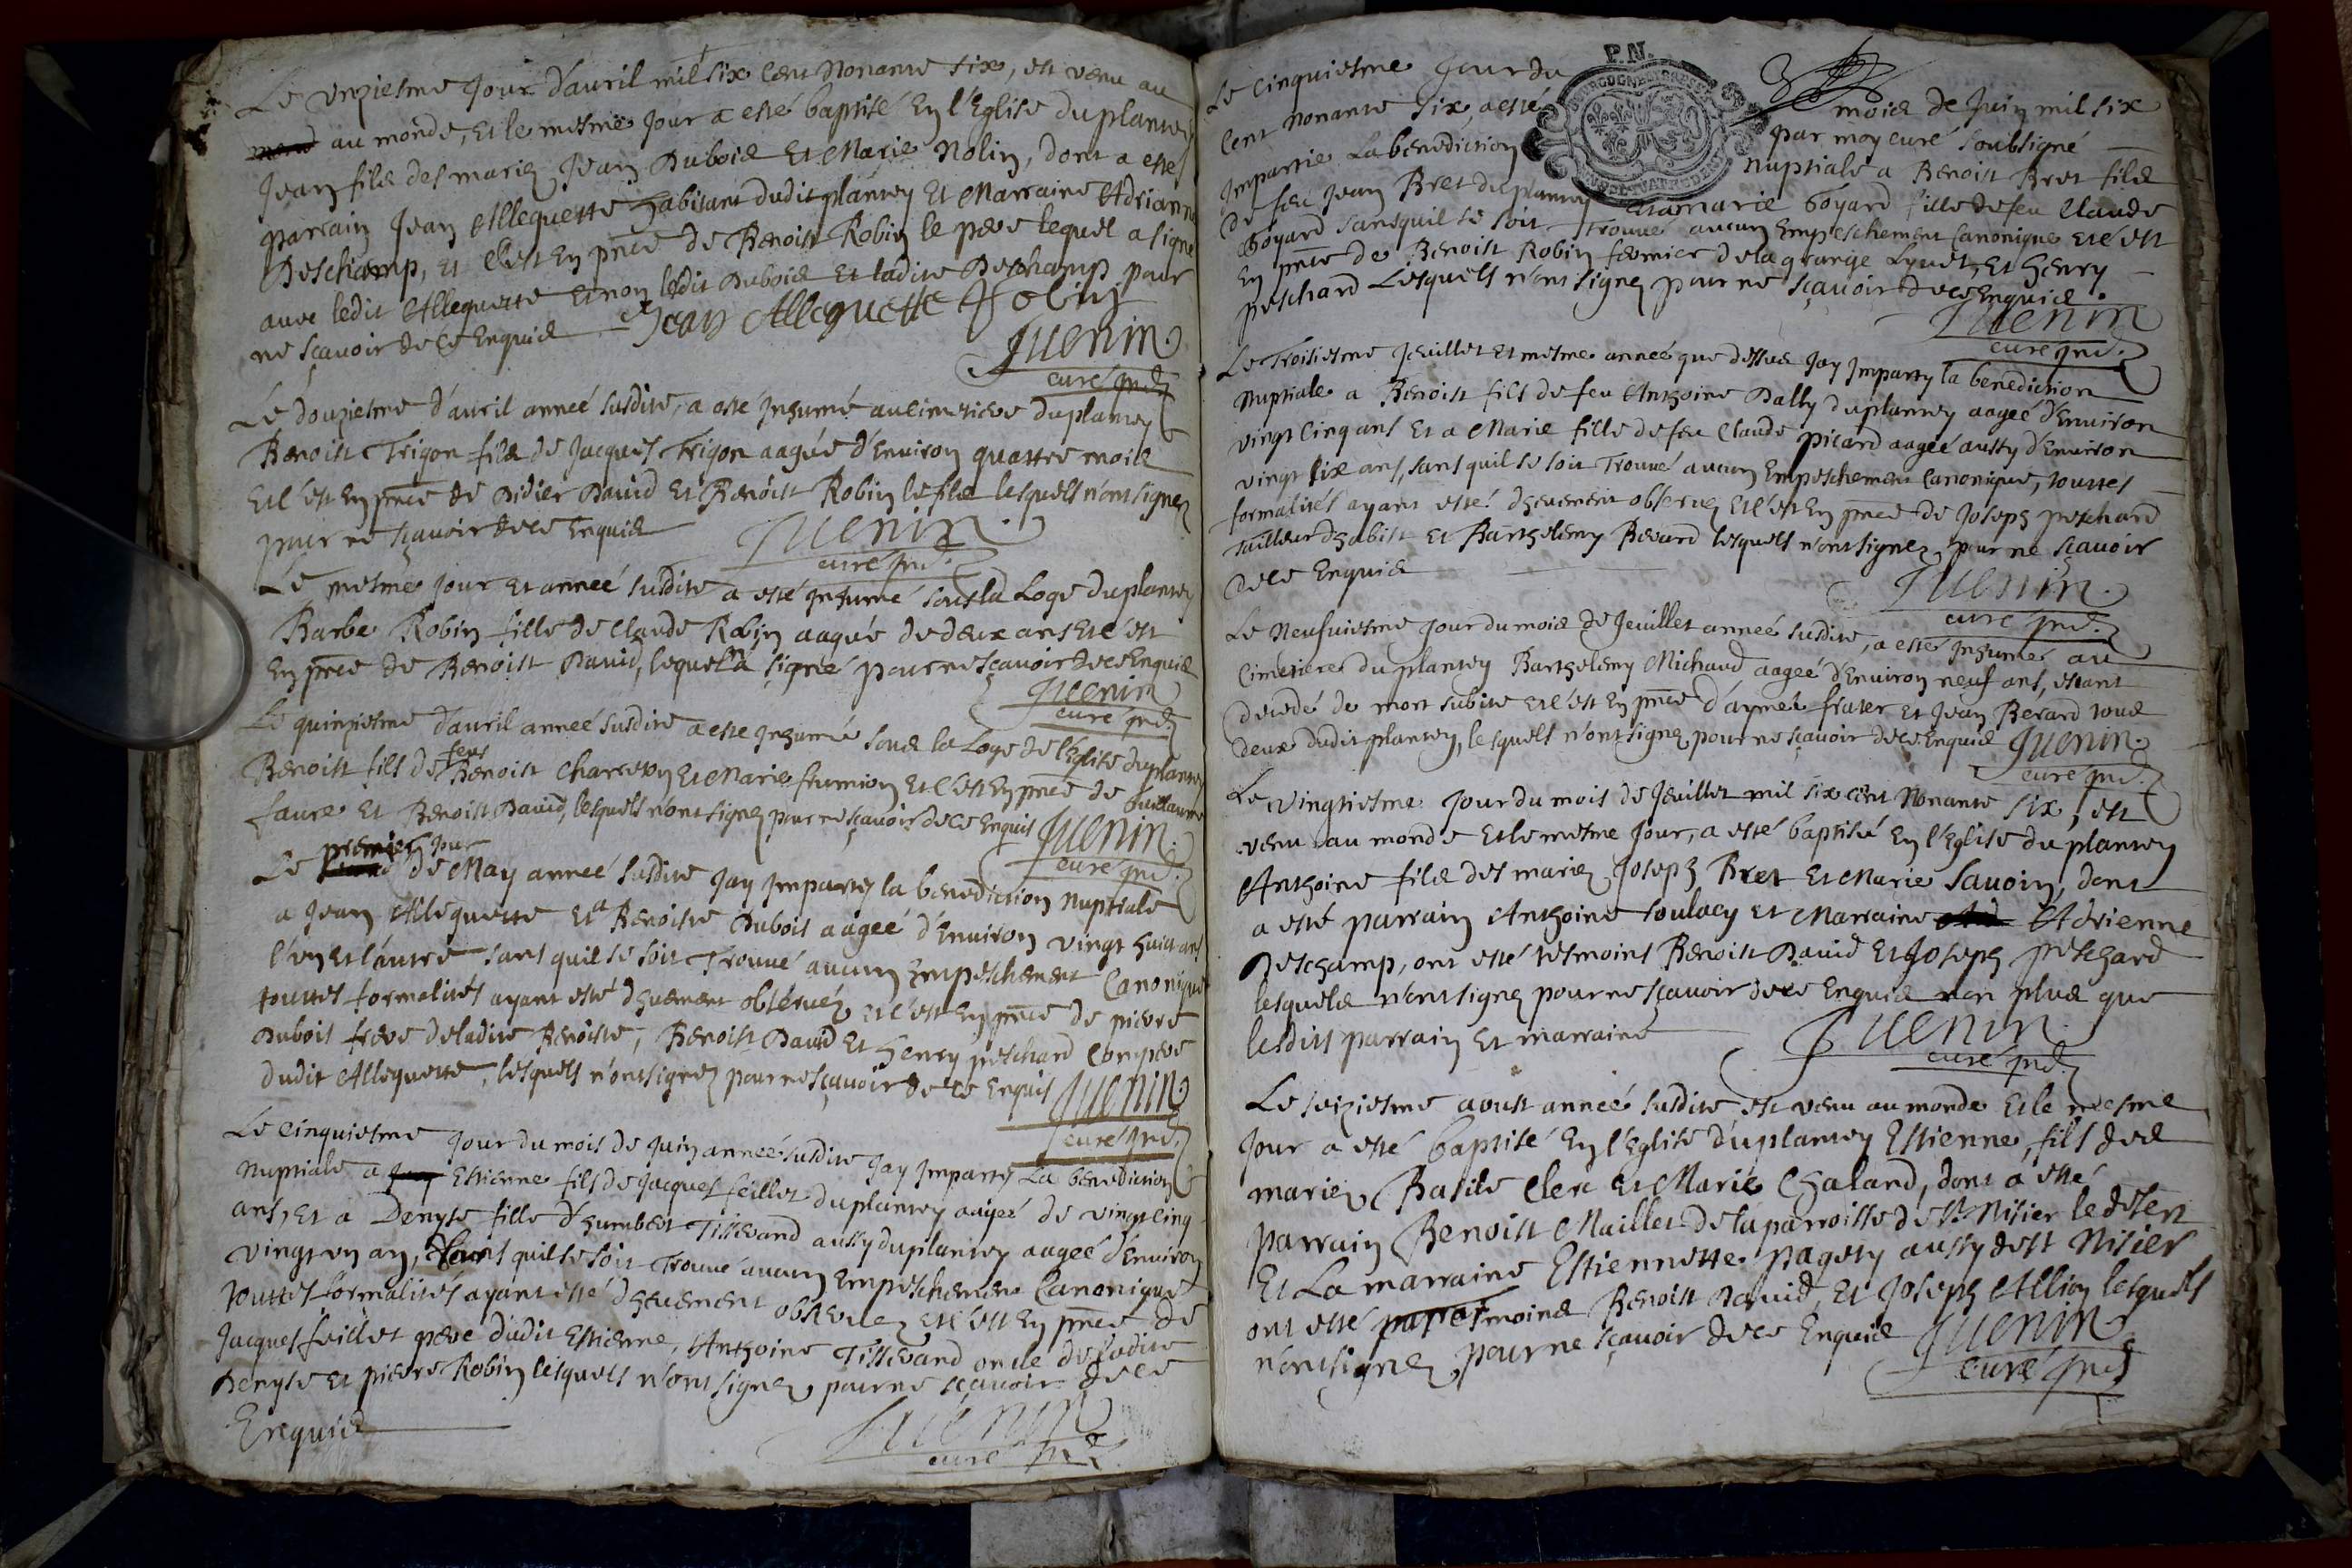 Le unziesme Jour d'auril mil six cent Nonante six, est venu au
au monde, Et le mesme Jour a esté baptisé En l'Eglise du plantey
Jean fils des mariez Jean Dubois Et Marie Nolin, dont a esté
parrain Jean Allequette habitant dudit plantey Et Marraine Adrianne
Deschamp, Et C'est En pnce de Benoist Robin le pere lequel a signé
auec ledit Allequette Et non ledit Dubois Et ladite Deschamp pour
ne sçauoir de ce Enquis Jean Allequette Robin
Juenin
curé pnt.
Le douziesme d'auril anneé susdite, a esté Inhumé au cimetiere du plantey
Benoist Trigon fils de Jacques Trigon aagée d'Enuiron quattre mois
Et c'est En pnce de Didier Dauid Et Benoist Robin le fils lesquels n'ont signez
pour ne sçauoir de ce Enquis
Juenin
curé pnt.
Le mesme Jour Et anneé susdite a esté Inhumé sous la Loge du plantey
Barbe Robin fille de Claude Robin aagée de deux ans Et c'est
En pnce de Benoist Dauid, lequel n'a signé pour ne sçauoir de ce Enquis
Juenin
curé pnt.
Le quinziesme d'auril anneé susdite a esté Inhumé sous la Loge de l'Eglise du plantey
Benoist fils de feus Benoist Et Marie Et c'est En pnce de Guillaume
faure Et Benoist Dauid, lesquels n'ont signez pour ne sçauoir de ce Enquis Juenin
curé pnt.
Le premier Jour de May anneé susdite Jay Imparty la benediction Nuptiale
a Jean Allequette Et a Benoiste Dubois aageé d'Enuiron vingt huict ans
l'un Et l'autre sans quil se soit Trouué aucun Empeschement Canonique
touttes formalités ayant esté dheuement obseruéz et c'est En pnce de pierre
Dubois frere de ladite Benoiste, Benoist Dauid Et Henry peschard Compere
dudit Allequette, lesquels n'ont signez pour ne sçauoir de ce Enquis Juenin
curé pnt.
Le cinquiesme Jour du mois de Juin anneé susdite Jay Imparty La benediction
Nuptiale a Estienne fils de Jacques feillet du plantey aageé de vingt cinq
ans, Et a Denyse fille d'humbert Tisserand aussy du plantey aageé d'Enuiron
vingt un an, sans quil se soit Trouué aucun Empeschement Canonique
touttes formalités ayant esté dheuement obseruez Et c'est En pnce de
Jacques feillet pere dudit Estienne, Anthoine Tisserand oncle de ladite
Denyse Et pierre Robin lesquels n'ont signez pour ne sçauoir de ce
Enquis
Juenin
curé pnt.
P.N.
Le Cinquiesme Jour du mois de Juin mil six
Cent nonante six, a esté par moy curé soubsigné
Impartie La benediction nuptiale a Benoist Bret fils
de feu Jean Bret du plantey Et a marie Goyard fille de feu Claude
Goyard sans quil se soit Trouué aucun Empeschement Canonique Et c'est
En pnce de Benoist Robin fermier de la grange Et Henry
peschard Lesquels n'ont signez pour ne sçauoir de ce Enquis.
Juenin
curé pnt.
Le Troisiesme Jeuillet Et mesme anneé que dessus Jay Imparty la benediction
Nuptiale a Benoist fils de feu Anthoine Dally du plantey aageé d'Enuiron
vingt Cinq ans Et a Marie fille de feu Claude picard aageé aussy d'Enuiron
vingt six ans, sans quil se soit Trouué aucun Empeschement Canonique, touttes
formalités ayant esté dheuement obseruez Et c'est En pnce de Joseph peschard
Tailleur d'habist Et Barthelemy Berard lesquels n'ont signez pour ne sçauoir
de ce Enquis
Juenin
curé pnt.
Le Neufuiesme Jour du mois de Jeuillet anneé susdite, a esté Inhumé au
Cimetiere du plantey Barthelemy Michaud aageé d'Enuiron neuf ans, estant
decedé de mort subite Et c'est En pnce d'aymé frater Et Jean Berard tous
deux dudit plantey, lesquels n'ont signez pour ne sçauoir de ce Enquis Juenin
curé pnt.
Le vingtiesme Jour du mois de Jeuillet mil six cent Nonante six, est
venu au monde Et le mesme Jour, a esté baptisé En l'Eglise du plantey
Anthoine fils des mariez Joseph Bret Et Marie Sauoin, dont
a esté parrain Anthoine Soulacy Et Marraine Adrienne
Deschamp, ont esté tesmoins Benoist Dauid Et Joseph peschard
lesquels n'ont signez pour ne sçauoir de ce Enquis non plus que
lesdits parrain Et marraine
Juenin
curé pnt.
Le seiziesme aoust anneé susdite, est venu au monde Et le mesme
Jour a esté baptisé En l'Eglise du plantey Estienne, fils des
mariez Basile Clerc Et Marie Chaland, dont a esté
parrain Benoist Maillet de la parroisse de St Nisier le desert
Et La marraine Estiennette pagety aussy de St Nisier
ont esté tesmoins Benoist Dauid, Et Joseph Allion lesquels
n'ont signez pour ne sçauoir de ce Enquis Juenin
curé pnt